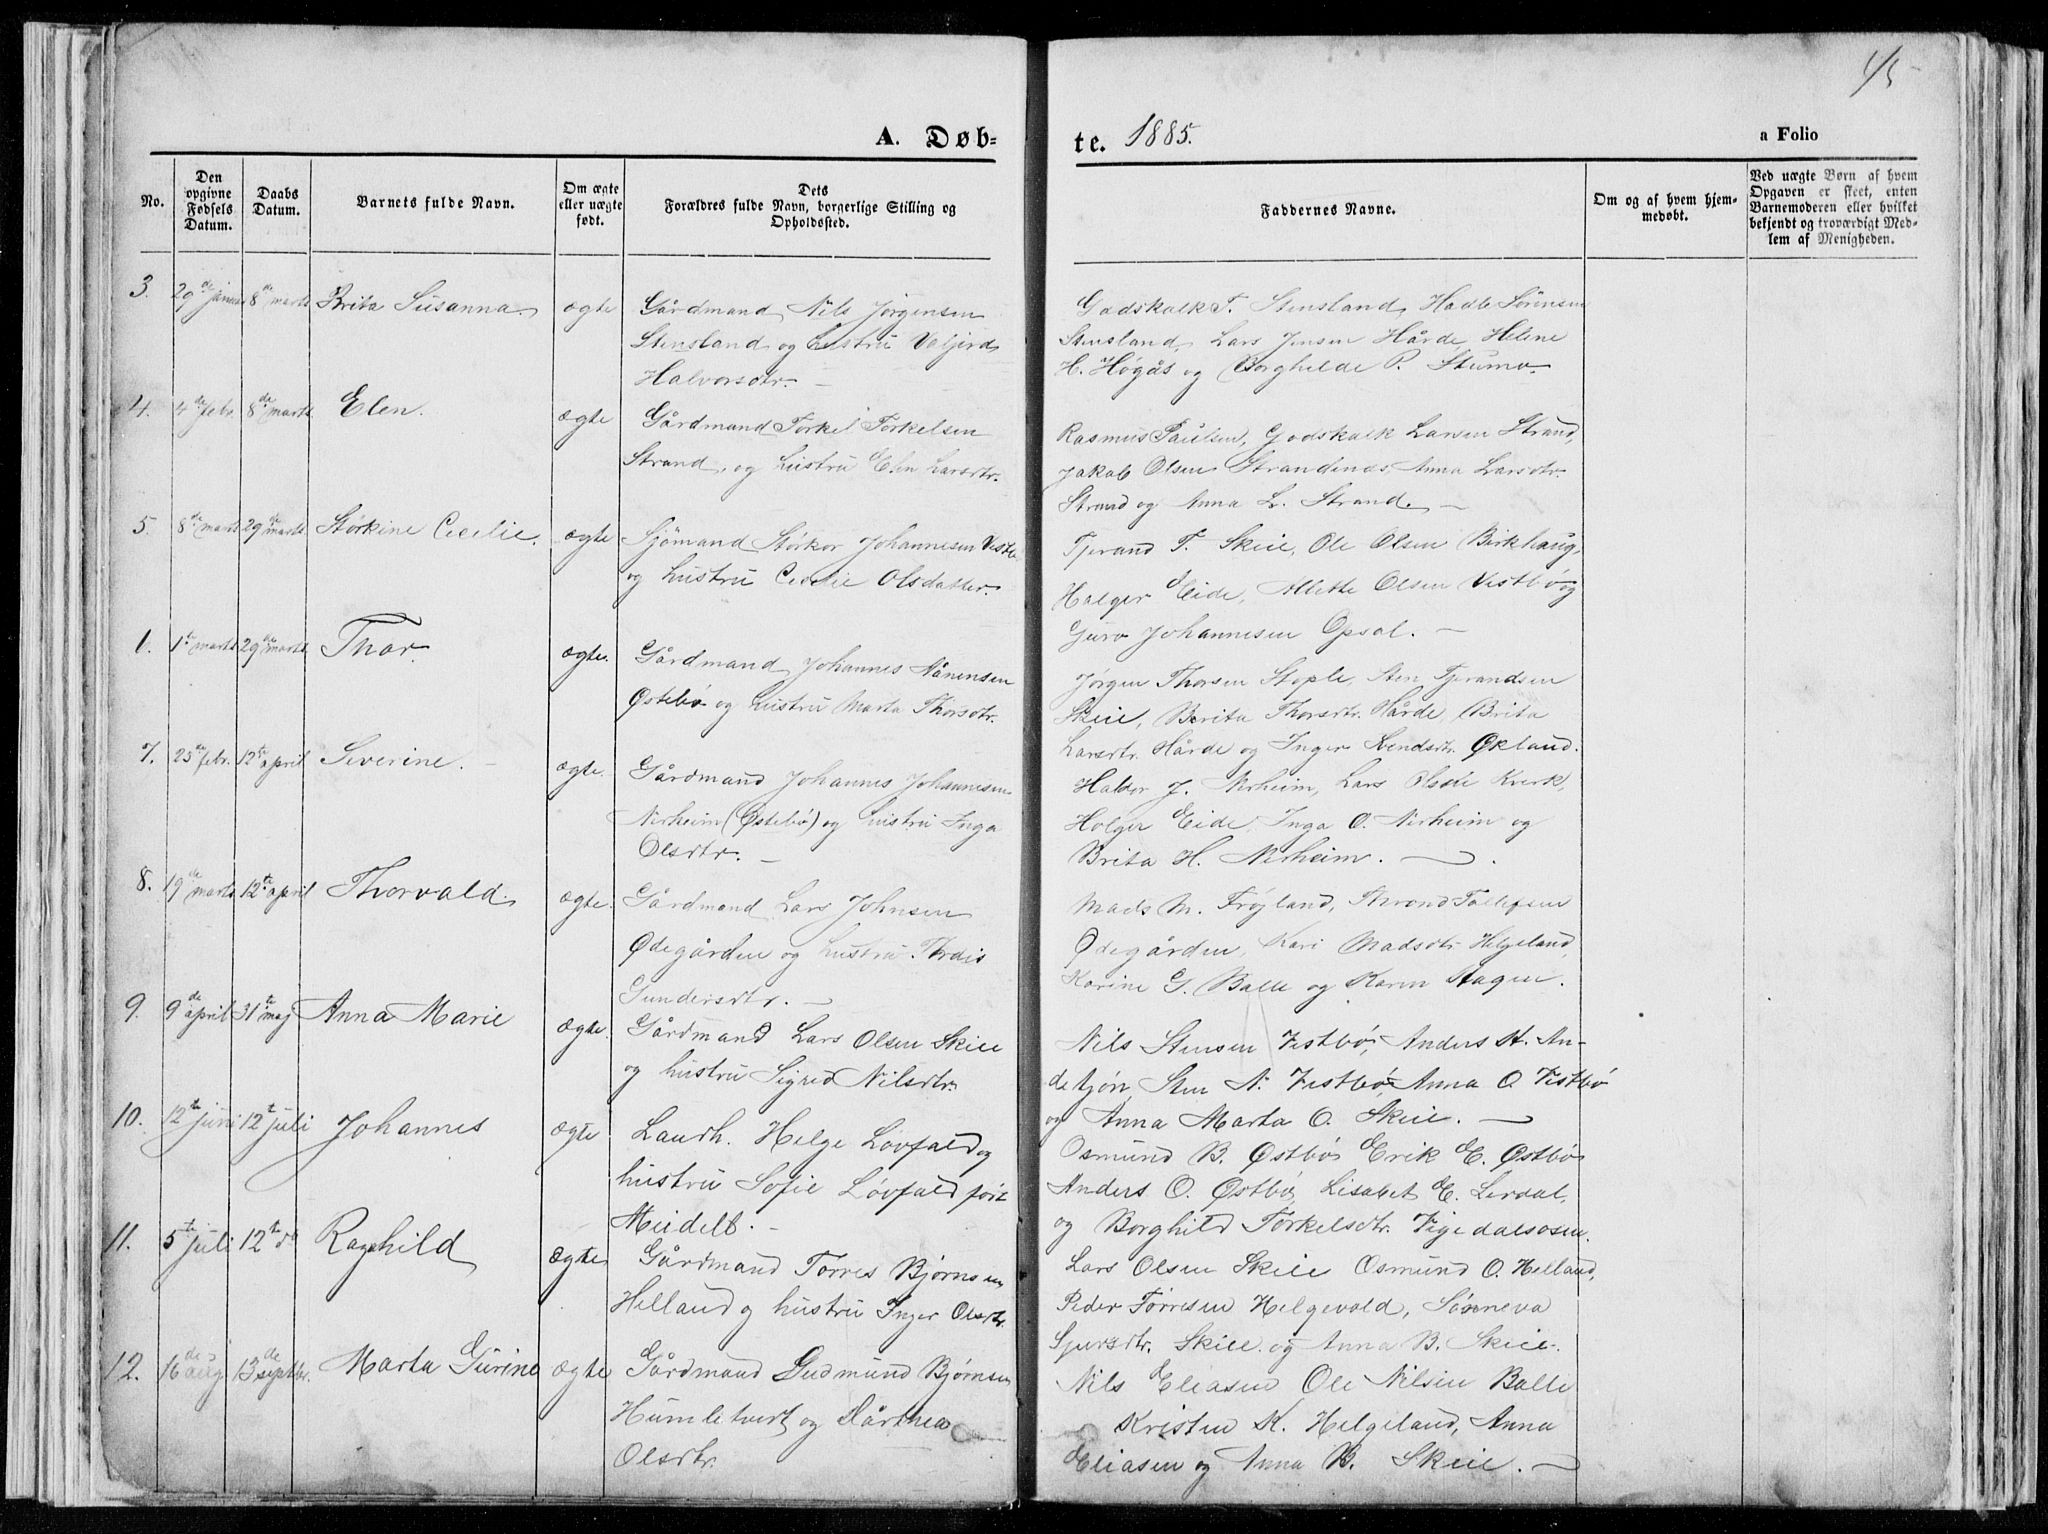 45
A. Døb-
te. 1885.
a Folio
No.
Den opgivne Fødsels Datum.
Daabs Datum.
Barnets fulde Navn.
Om ægte eller uægte født.
Dets Forældres fulde Navn, borgerlige Stilling og Opholdssted.
Faddernes Navne.
Om og af hvem hjemmedøbt.
Ved uægte Børn af hvem Opgaven er skeet, enten Barnemoderen eller hvilket bekjendt og troværdigt Medlem af Menigheden.
3. 29de januar 8de marts Brita Susanna. ægte Gårdmand Nils Jørgensen
Stensland og hustru Valjerd
Halvorsdtr. –
Godskalk T. Stensland, Hadle Sørensen
Stensland, Lars Jensen Hårde, Helene
H. Høgås og Borghilde P. Stumo.
4. 4de febr. 8de marts Elen. ægte Gårdmand Torkel Torkelsen
Strand, og hustru Elen Larsdtr.
Rasmus Paulsen, Godskalk Larsen Strand,
Jakob Olsen Strandenæs Anna Larsdtr.
Strand og Anna L. Strand. –
5. 8de marts 29de marts Størkine Cecilie. ægte Sjömand Størkor Johannesen Vestb
og hustru Cecilie Olsdatter.
Tjerand T. Skeie, Ole Olsen Birkhaug,
Holger Eide, Allette Olsen Vestbø og
Guro Johannesen Opsal. –
1. 1te marts 29de marts Thor. ægte. Gårdmand Johannes Månensen
Østebø og hustru Marta Thorsdtr.
Jørgen Thorsen Stople, Sten Tjerandsen
Skeie, Berita Thorsdtr. Hårde, Brita
Larsdtr. Hårde og Inger Svendsdtr. Økland.
7. 25de febr. 12te april Severine. – ægte. Gårdmand Johannes Johannesen
Nerheim (Østebø) og hustru Inga
Olsdtr. –
Haldor J. Nerheim, Lars Kverk,
Holger Eide, Inga O. Nerheim og
Brita H. Nerheim. –
8. 19de marts 12te april Thorvald. ægte. Gårdmand Lars Johnsen
Ødegården og hustru Tordis
Gundersdtr. –
Mads M. Frøjland, Thrond Tollefsen
Ødegården, Kari Madsdtr. Helgeland,
Karine G. Balle og Karen Hagen.
9. 9de april 31te maj Anna Marie ægte. Gårdmand Lars Olsen Skeie
og hustru Sigred Nilsdtr.
Nils Stensen Vestbø, Anders St. An-
detjørn, Sten N. Vestbø, Anna O. Vestbø
og Anna Marta O. Skeie. –
10. 12te juni 12te juli Johannes ægte Laurh. Helge Løvfald og
hustru Sofie Løvfald født
Meidell. –
Osmund B. Østbø Erik E. Østbø
Anders O. Østbø, Lisabet E. Lerdal,
og Borghild Torkelsdtr. Vigedalsosen.
11. 5te juli 12te do Ragnhild ægte Gårdmand Torres Bjørnsen
Helland og hustru Inger Olsdtr.
Lars Olsen Skeie Osmund O. Helland,
Peder Torresen Helgevold, Sønneva
Sjursdtr. Skeie og Anna B. Skeie.
12. 16de aug 13de septbr. Marta Gurine ægte Gårdmand Gudmund Bjørnsen
Humletvert og Dårthea
Olsdtr.
Nils Eliasen Ole Nilsen Balle
Kristen K. Helgeland, Anna
Eliasen og Anna B. Skeie. –